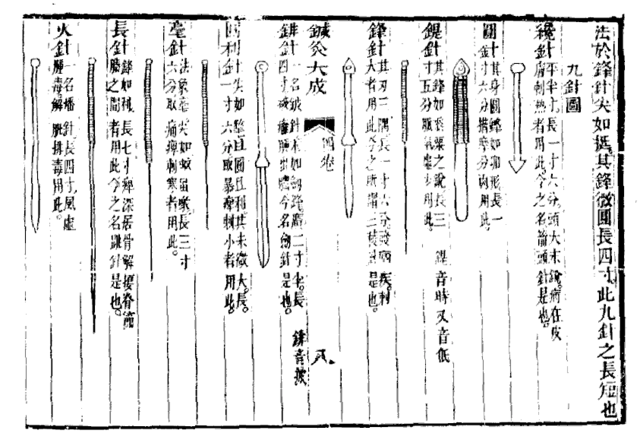 法於鋒針尖如挺其鋒微圓長四寸此九針之長短也
九針圖
鑱針平半寸長一寸六分頭大末銳病在皮
膚刺熱者用此今之名箭頭針是也
圓針其身圓鋒如卵形長一
寸六分揩摩分肉用此
鍉針其鋒如黍粟之銳長三
寸五分脈氣虛少用此
鍉音時又音低
鋒針其刃三隅長一寸六分發痼疾刺
大者用此今之所謂三稜針是也
鍼灸大成
四卷
八
鈹針一名鈹針末如劍鋒廣二寸半長
四寸破癰腫出膿今名劍針是也
鈹音披
員利針尖如氂且圓且利其末微大長
一寸六分取暴痺刺小者用此
毫針法象毫尖如蚊虻喙長三寸
六分取痛痺刺寒者用此
長針鋒如利長七寸痺深居骨解腰脊節
腠之間者用此今之名鐮針是也
火針一名燔針長四寸風虛
腫毒解肌排毒用此